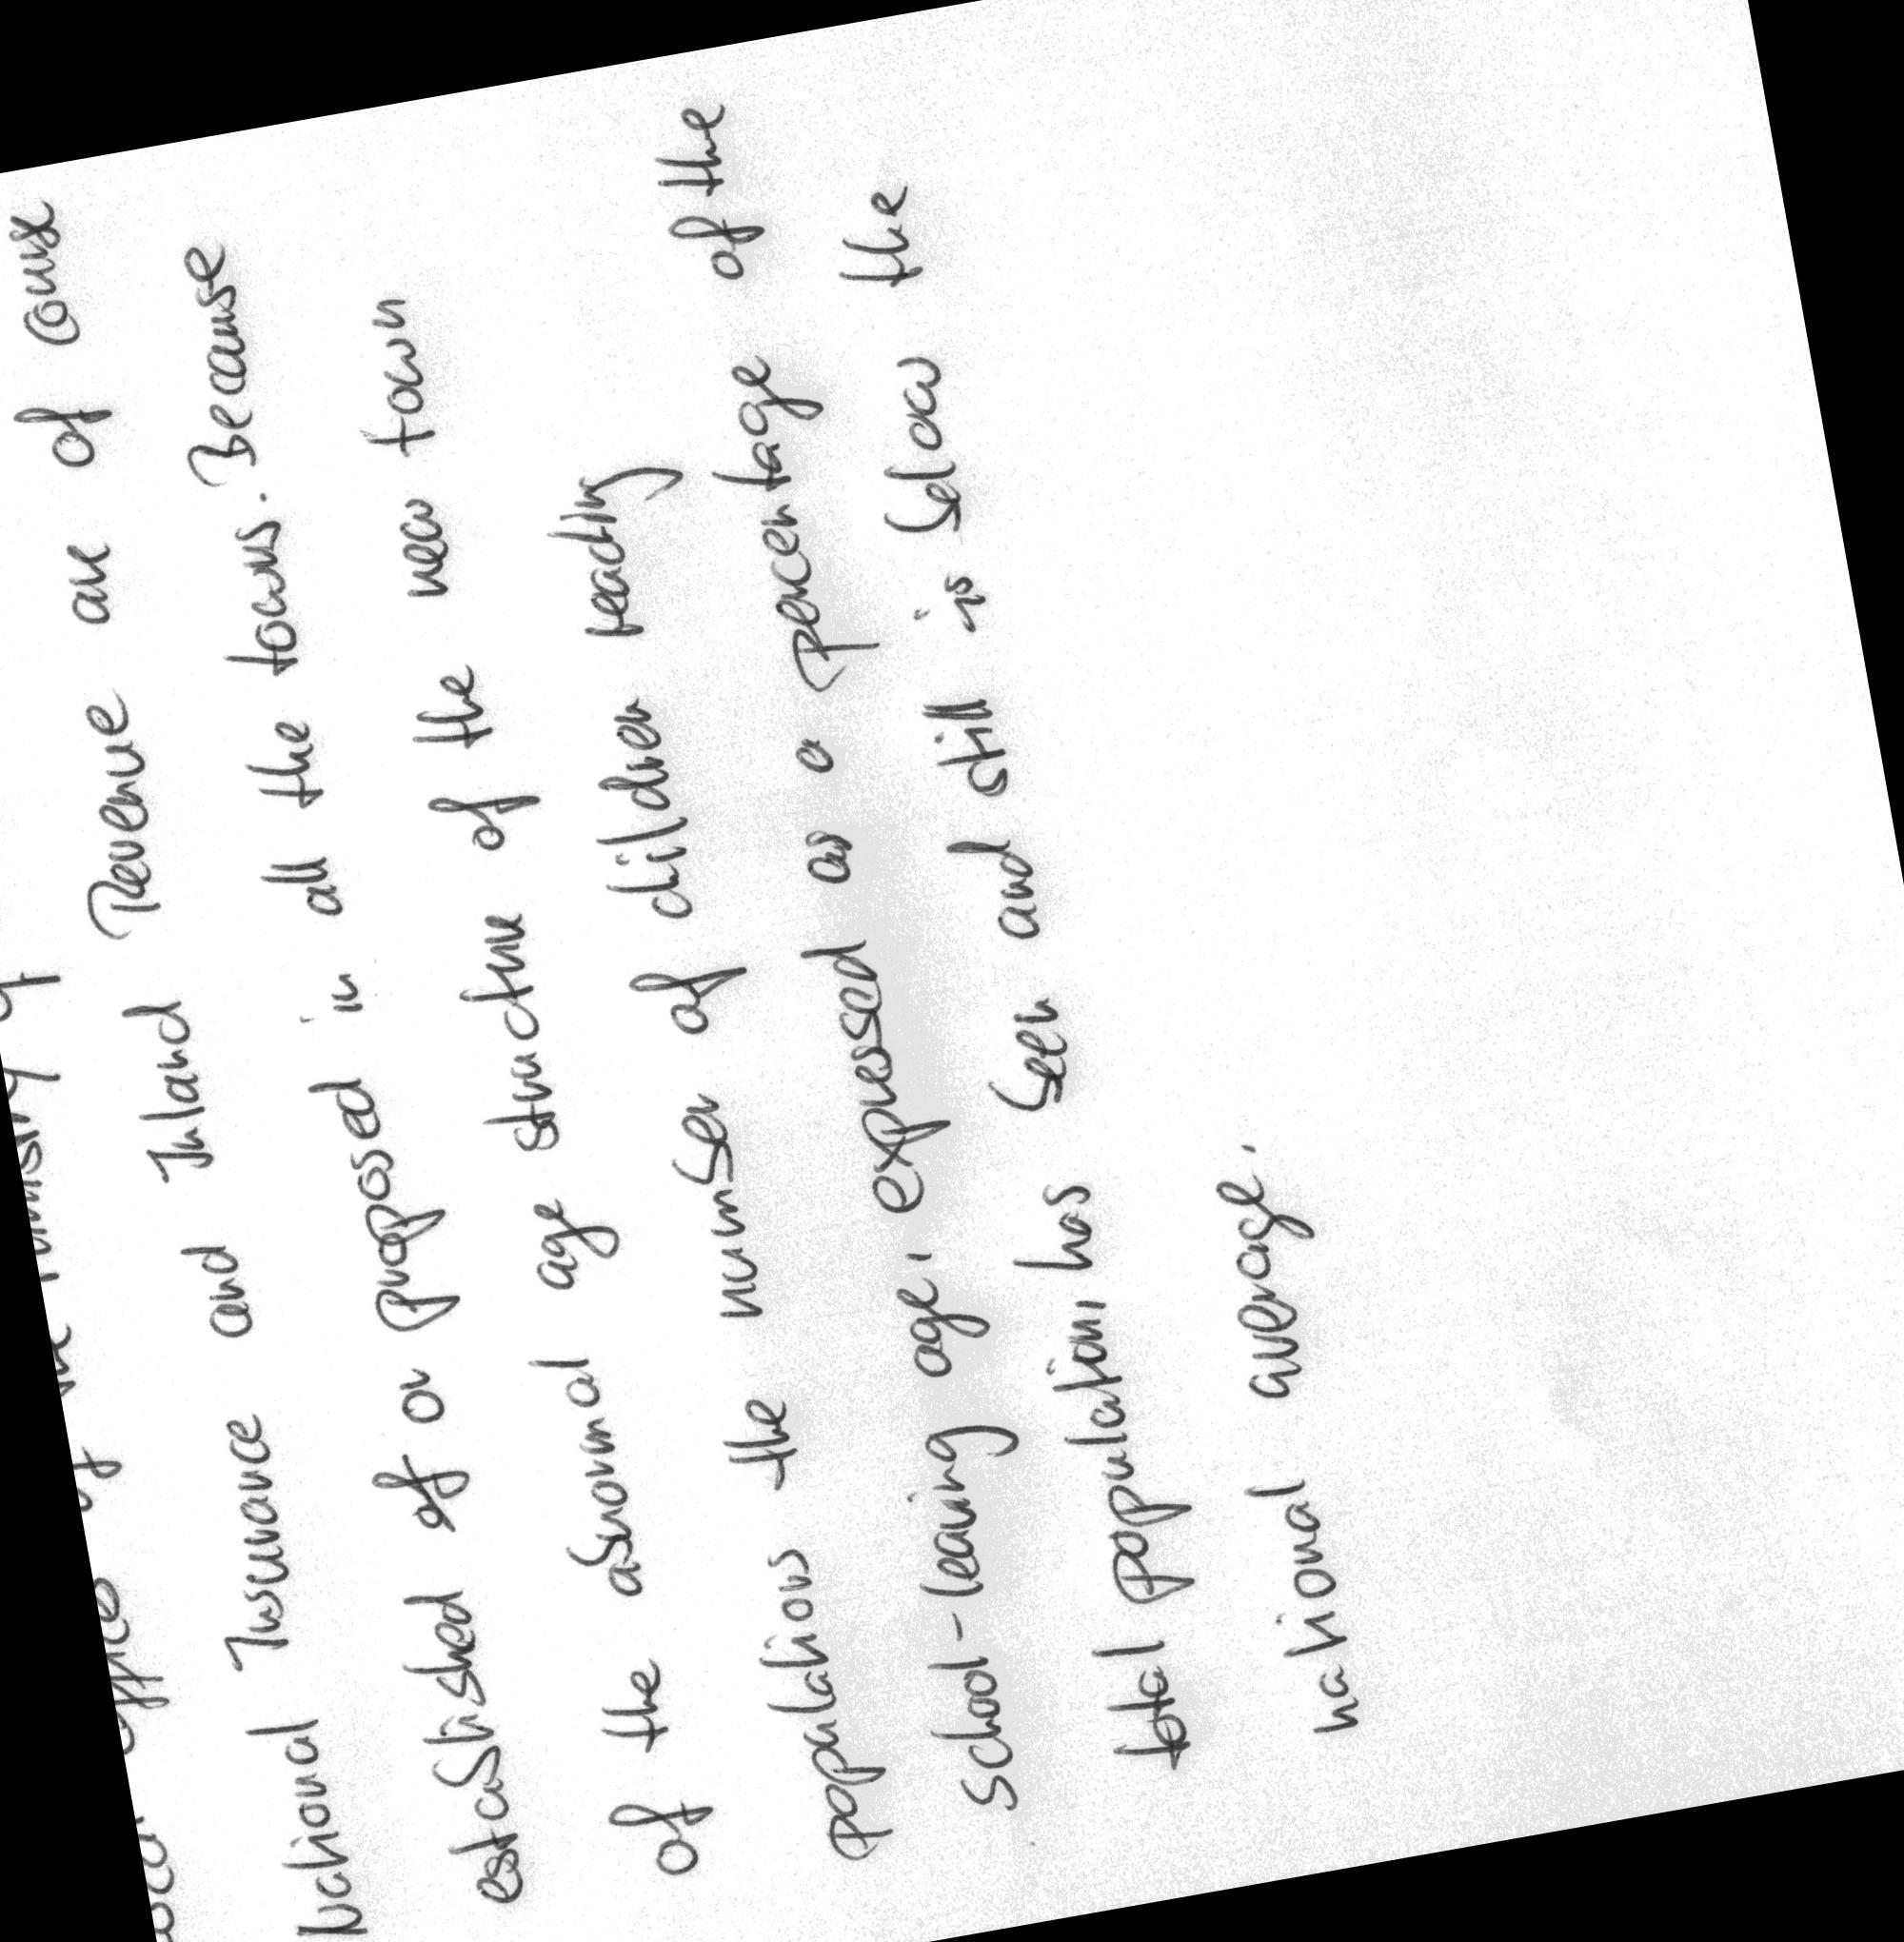 National Insurance and Inland Revenue are of course
established or proposed in all the towns. Because
of the abnormal age structure of the new town
populations the number of children reaching
school-leaving age, expressed as a percentage of the
total population, has been and still is below the
national average.